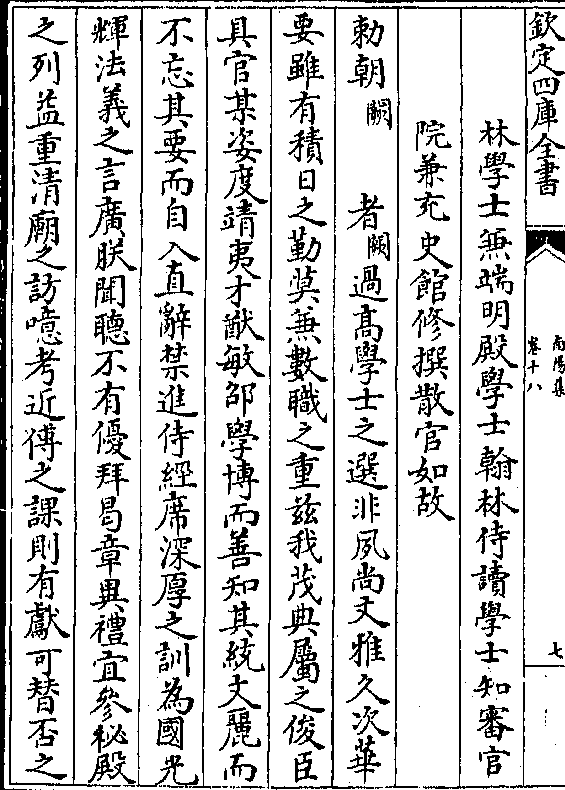 欽定四庫全書
南陽集
卷十八
七
林學士兼端明殿學士翰林侍讀學士知審官
院兼充史館修撰散官如故
勅朝闕者闕過髙學士之選非夙尚文雅久次華
要雖有積日之勤莫兼數職之重兹我茂典屬之俊臣
具官某姿度靖夷才猷敏邵學博而善知其統文麗而
不忘其要而自入直辭禁進侍經席深厚之訓為國光
輝法義之言廣朕聞聽不有優拜曷章異禮宜參秘殿
之列益重清廟之訪噫考近傅之課則有獻可替否之